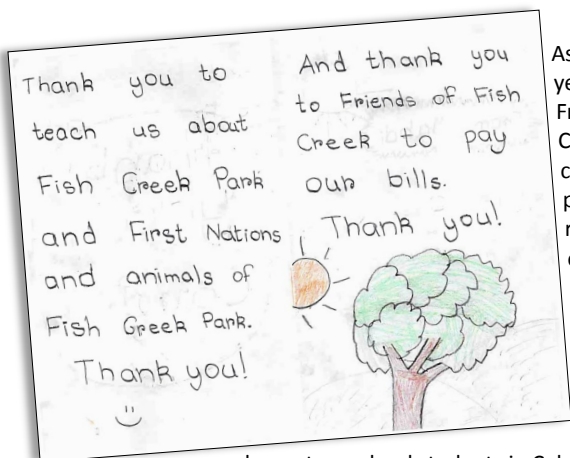 Thank you to
teach us about
Fish Creek Park
and First Nations
and animals of
Fish Creek Park.
Thank you!
And thank you
to Friends of Fish
Creek to pay
our bills.
Thank you!
As
ye
Fr
C
c
p